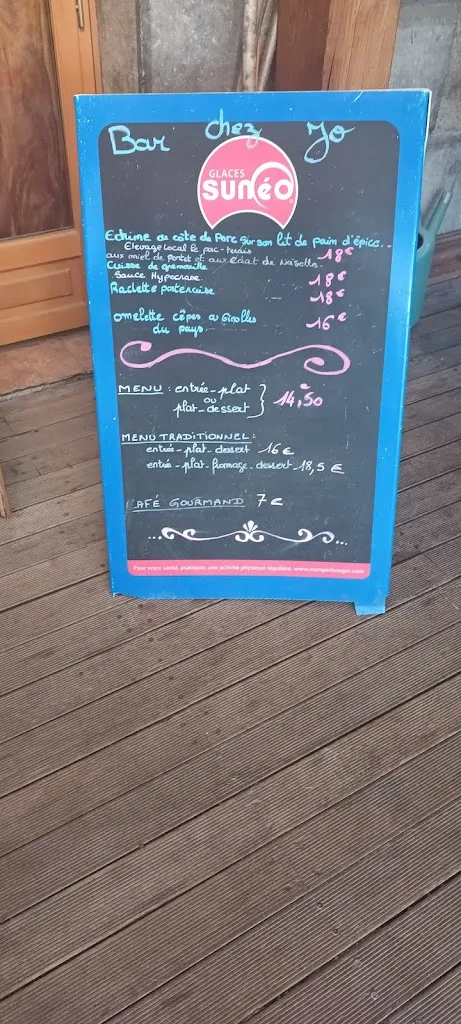 Bar chez Jo
GLACES
SUNÉO
de côte de Porc sur son lit de pain d'épice..
Elevage local le
aux miel de et aux éclat de 18€
Cuisse de grenouille
Sauce 18€
Raclette 18€
omelette cêpes ou Girolles 16€
du pays
MENU : entrée-plat
ou
plat-dessert
14,50€
MENU TRADITIONNEL :
entrée-plat-dessert 16€
entrée-plat-fromage-dessert 18,5€
CAFÉ GOURMAND 7€
Pour votre santé, pratiquez une activité physique régulière. www.mangerbouger.com